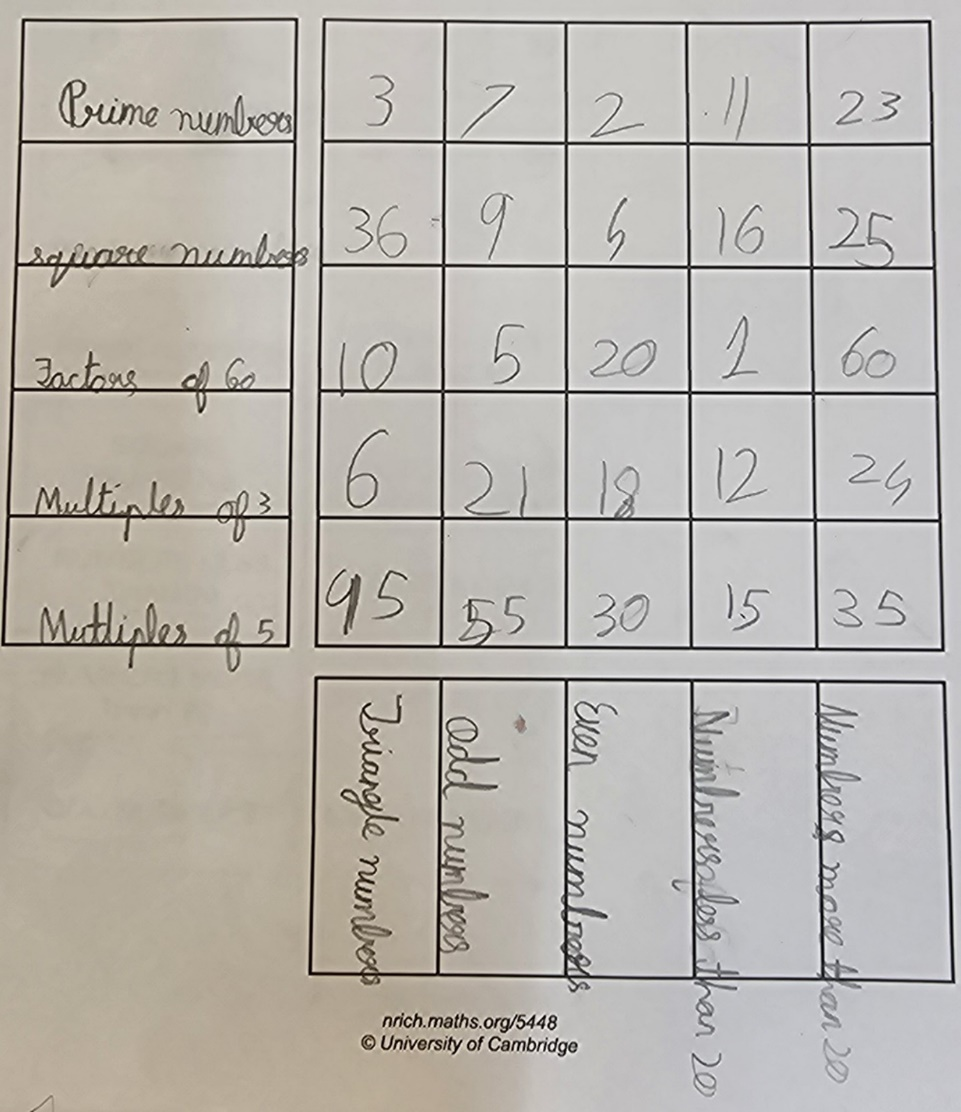 Prime numbers 3 7 2 11 23
square numbers 36 9 4 16 25
Factors of 60 10 5 20 1 60
Multiples of 3 6 21 18 12 24
Multliples of 5 95 55 30 15 35
Triangle numbers
odd numbers
Even numbers
Numbers less than 20
Numbers more than 20
nrich.maths.org/5448
© University of Cambridge